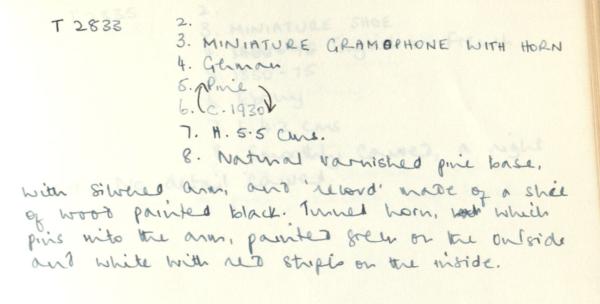 T 2833 2.
3. MINIATURE GRAMOPHONE WITH HORN
4. German
5. Pine
6. C. 1930
7. H. 5.5 cms.
8. Natural varnished pine base,
with silvered arm, and 'record' made of a slice
of wood painted black. Turned horn, which
pins into the arm, painted green on the outside
and white with red stripes on the inside.